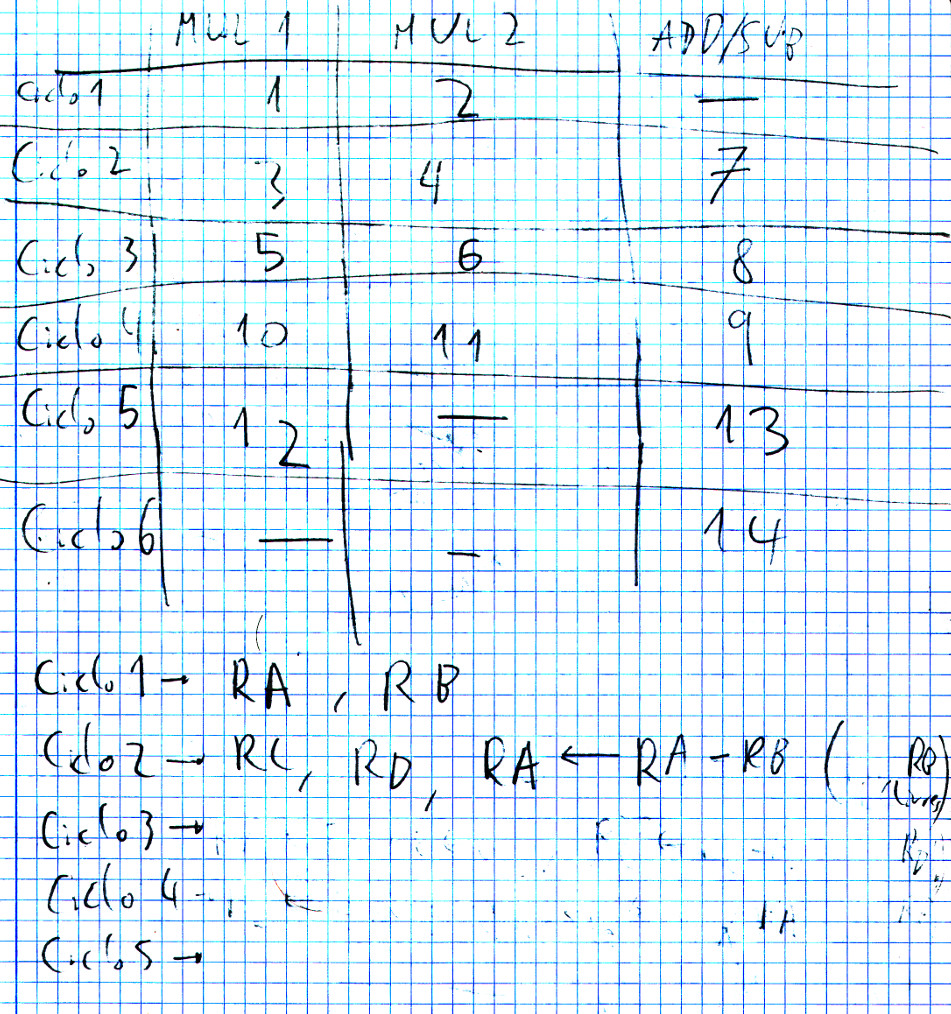 MUL 1 MUL 2 ADD/SUB
Ciclo 1 1 2 —
Ciclo 2 3 4 7
Ciclo 3 5 6 8
Ciclo 4 10 11 9
Ciclo 5 12 — 13
Ciclo 6 — – 14
Ciclo 1 → RA , RB
Ciclo 2 → RC, RD, RA ← RA - RB ( RB
Ciclo 3 →
Ciclo 4
Ciclo 5 →